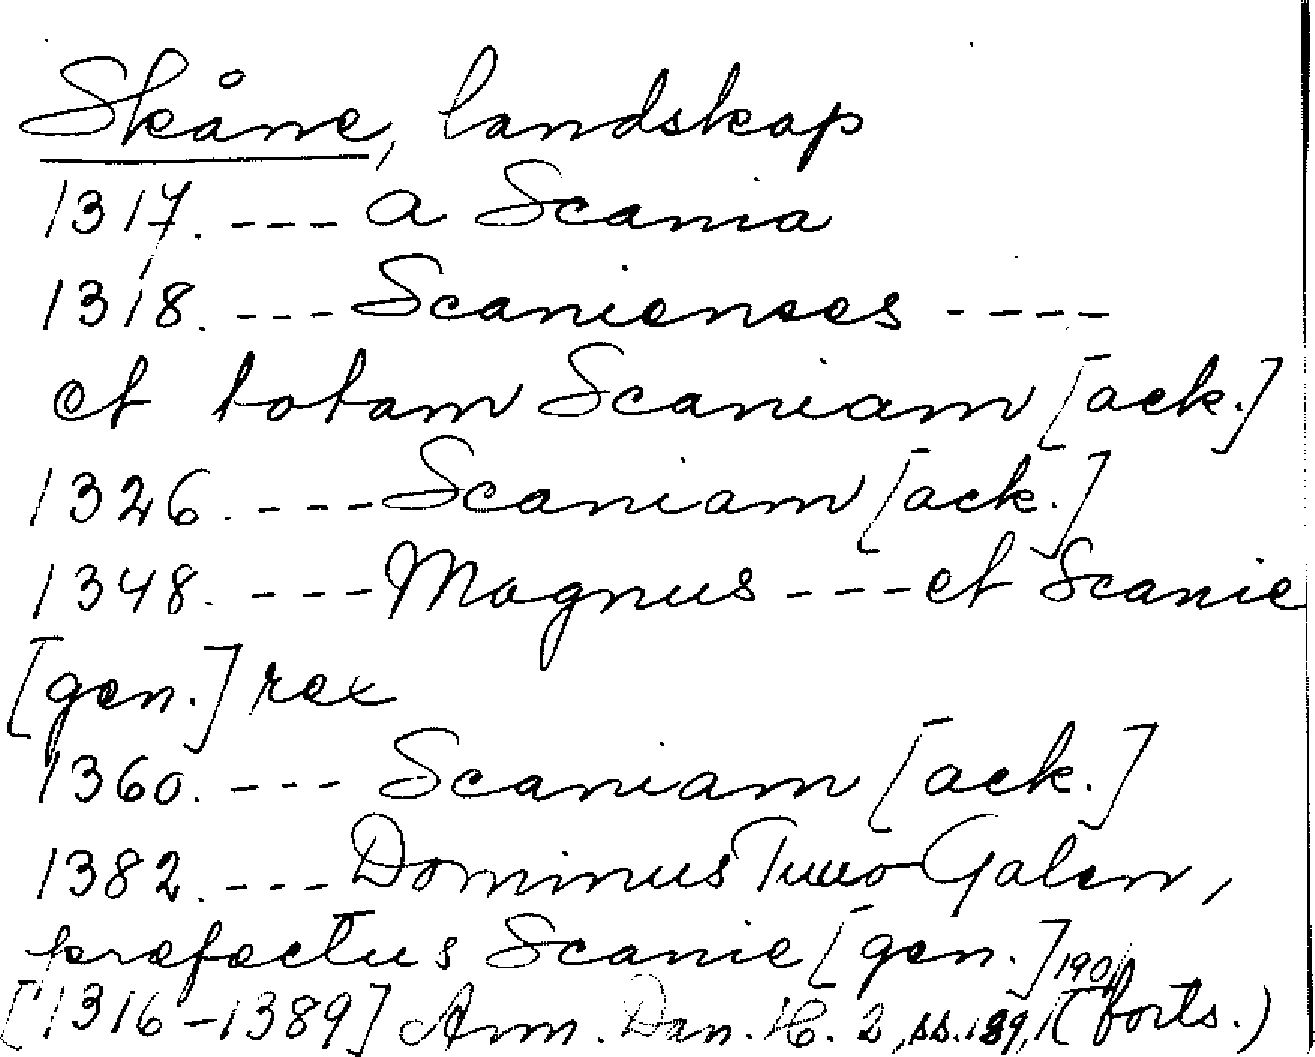 Skåne, landskap
1317. --- a Scania
1318. --- Scanienses ----
et totam Scaniam [ack.]
1326. --- Scaniam [ack.]
1348. --- Magnus --- et Scanie
[gen.] rex
1360. --- Scaniam [ack.]
1382. --- Dominus Tuuo Galen,
prefectus Scanie [gen.]
[1316-1389] Ann. Dan. H. 2, ss. 189, 190, (forts.)